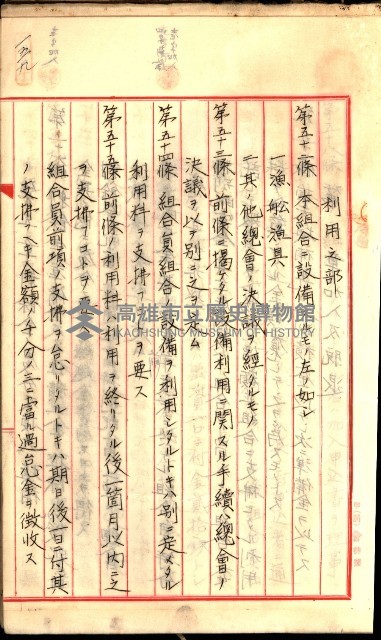 利用之部
第五十二條 本組合ニ設備スルモノ左ノ如シ
一漁船漁具
二其ノ他總會ノ決議ヲ經タルモノ
第五十三條 前條ニ揭ゲタル設備利用ニ關スル手續ハ總會ノ
決議ヲ以テ別ニ之ヲ定ム
第五十四條 組合員組合ノ設備ヲ利用シタルトキハ別ニ定メタル
利用料ヲ支拂フコトヲ要ス
第五十五條 前條ノ利用料ハ利用ヲ終リタル後一箇月以内ニ之
ヲ支拂フコトヲ要ス
組合員前項ノ支拂ヲ怠リタルトキハ期日後一日ニ付其
ノ支拂フベキ金額ノ千分ノ三ニ當ル過怠金ヲ徵收ス
一五九
高雄市立歷史博物館
KAOHSIUNG MUSEUM OF HISTORY